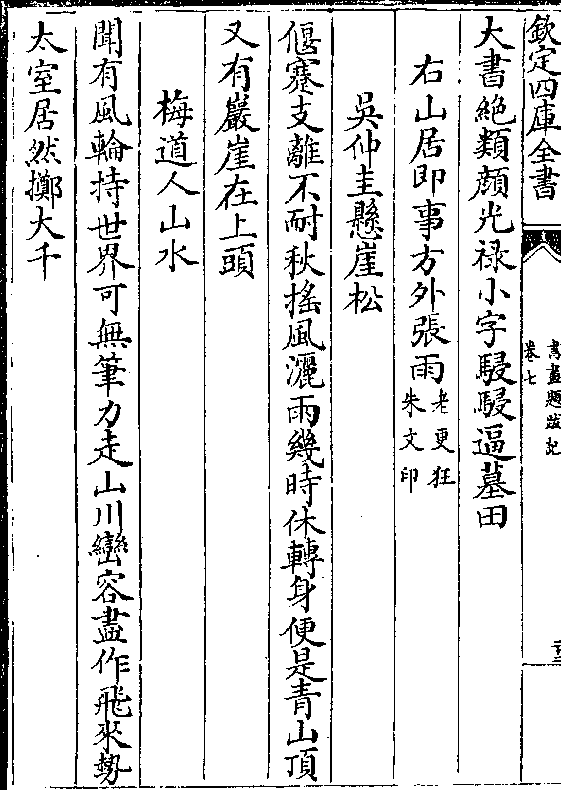 欽定四庫全書
書畫題跋記
卷七
大書絶類顔光禄小字駸駸逼墓田
右山居即事方外張雨老更狂朱文印
吳仲圭懸崖松
偃蹇支離不耐秋搖風灑雨幾時休轉身便是青山頂
又有巖崖在上頭
梅道人山水
聞有風輪持世界可無筆力走山川巒容盡作飛來勢
太室居然擲大千